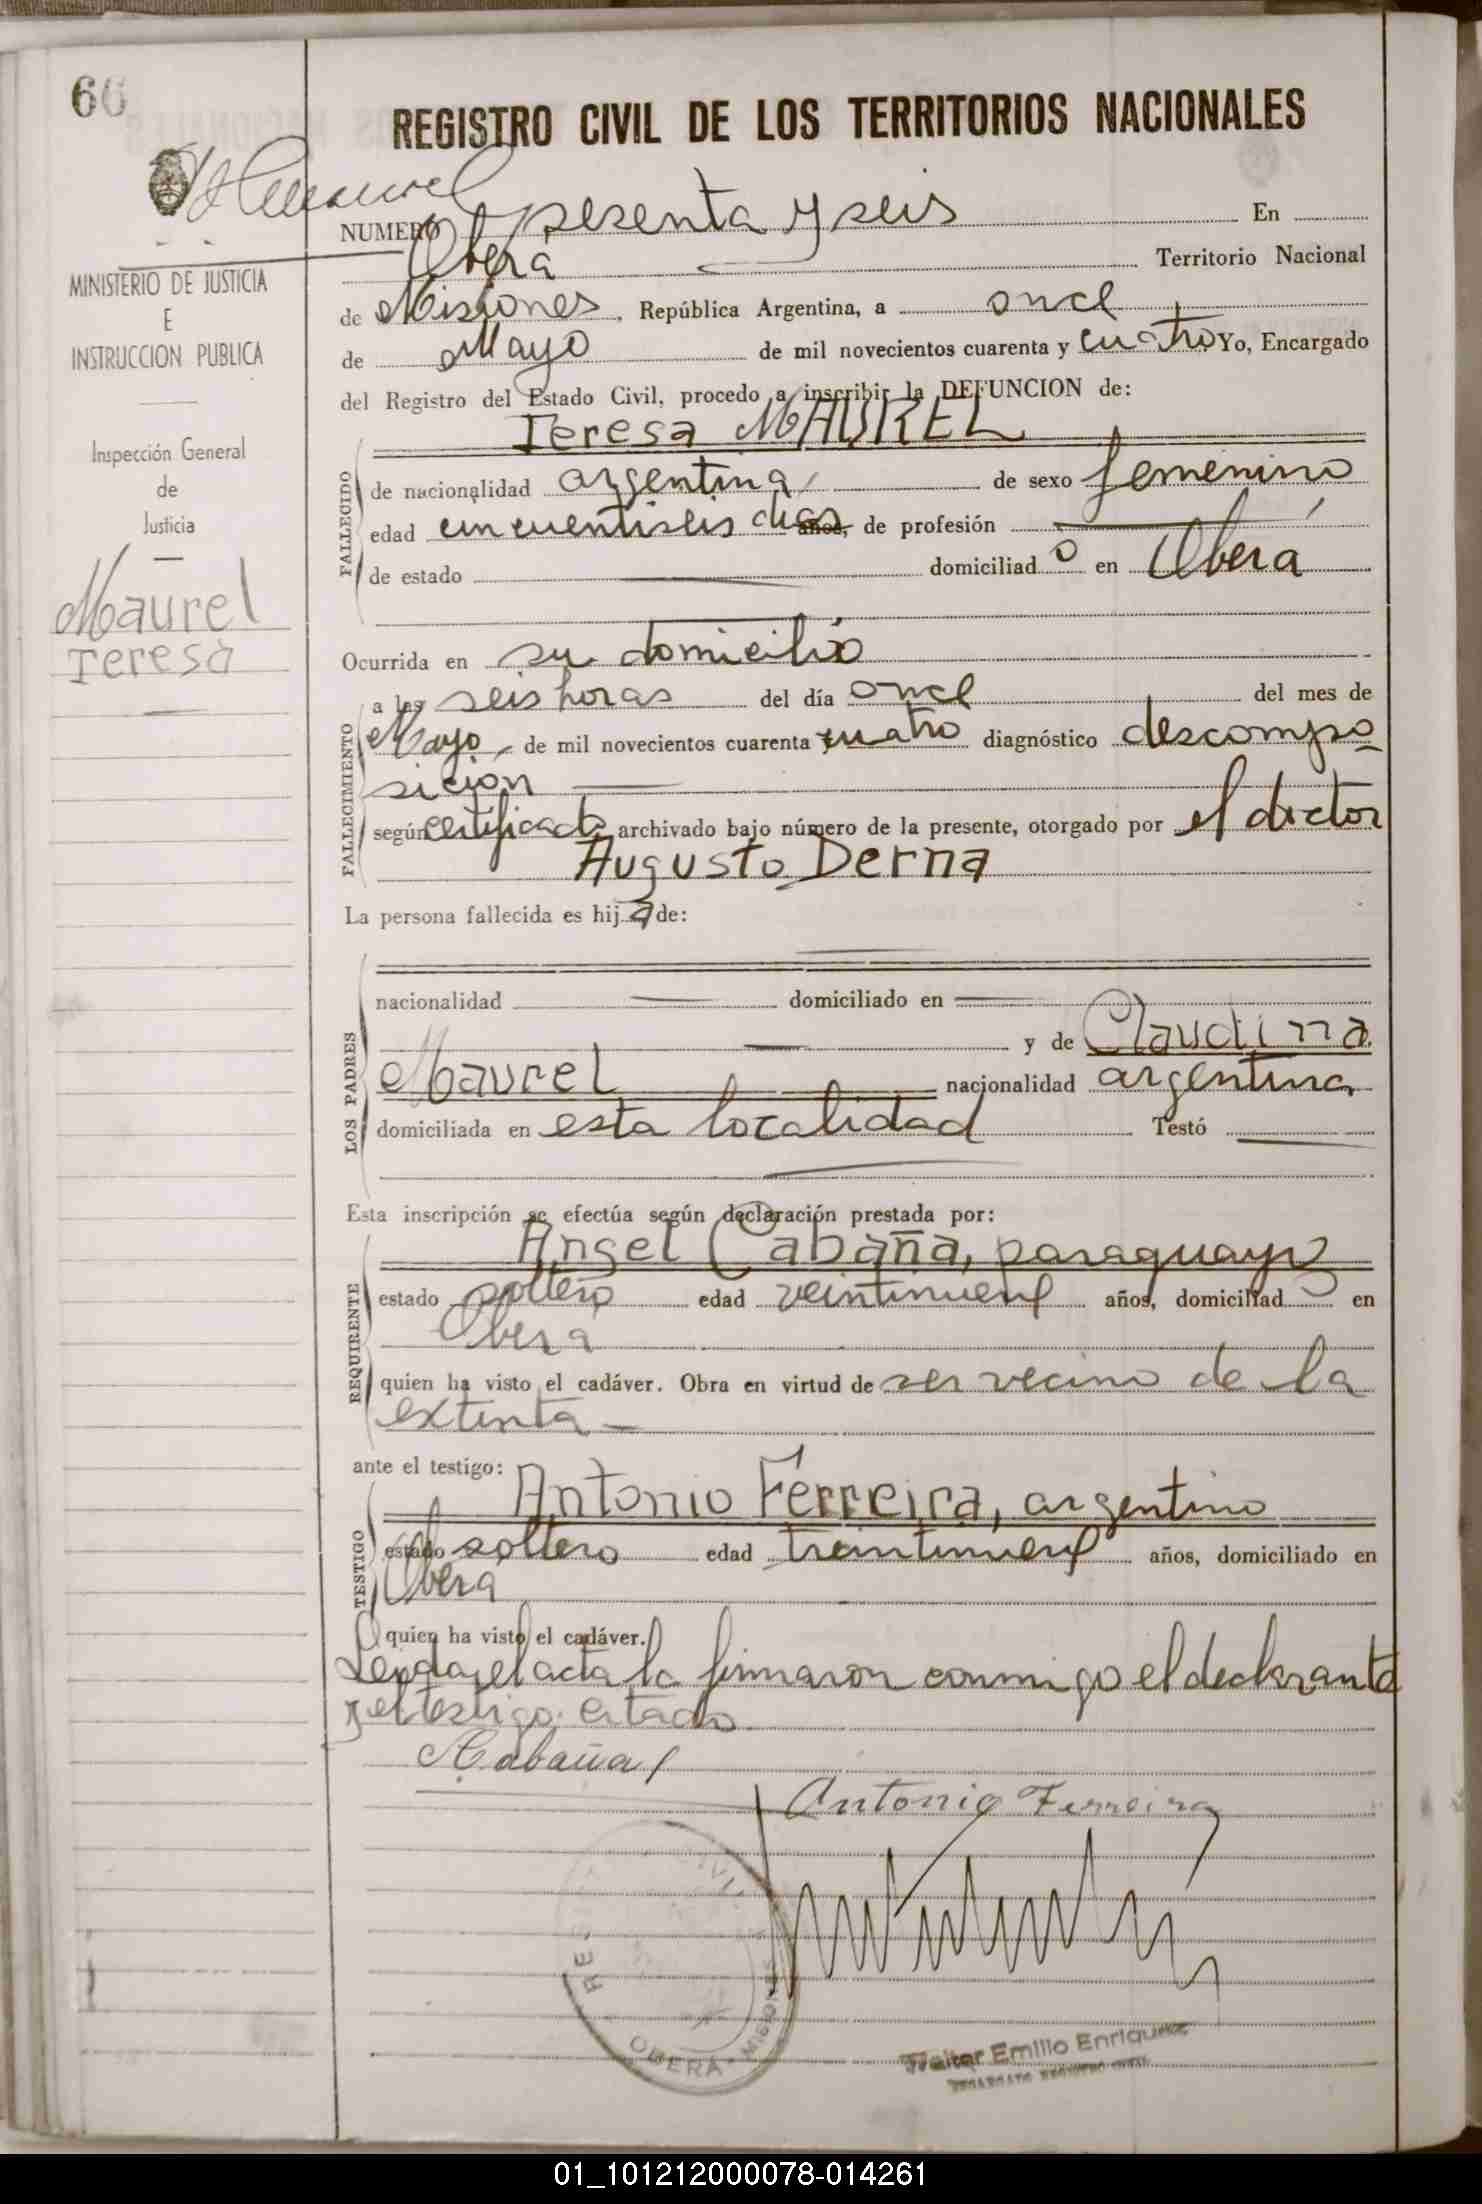 66
REGISTRO CIVIL DE LOS TERRITORIOS NACIONALES
NUMERO sesenta y seis En
Oberá Territorio Nacional
MINISTERIO DE JUSTICIA
E
INSTRUCCION PUBLICA
Inspección General
de
Justicia
Maurel
Teresa
de Misiones, República Argentina, a once
de Mayo de mil novecientos cuarenta y cuatro Yo, Encargado
del Registro del Estado Civil, procedo a inscribir la DEFUNCION de:
Teresa MAUREL
FALLECIDO
de nacionalidad argentina de sexo femenino
edad cincuentiseis dias años, de profesión
de estado domiciliado en Oberá
Ocurrida en su domicilio
FALLECIMIENTO
a las seis horas del día once del mes de
Mayo de mil novecientos cuarenta cuatro diagnóstico descompo
sición
según certificado archivado bajo número de la presente, otorgado por el doctor
Augusto Derna
La persona fallecida es hija de:
LOS PADRES
nacionalidad domiciliado en
y de Claudina
Maurel nacionalidad argentina
domiciliada en esta localidad Testó
Esta inscripción se efectúa según declaración prestada por:
REQUIRENTE
Angel Cabaña, paraguayo
estado soltero edad veintinueve años, domiciliado en
Oberá
quien ha visto el cadáver. Obra en virtud de ser vecino de la
extinta
ante el testigo:
TESTIGO
Antonio Ferreira, argentino
estado soltero edad treintinueve años, domiciliado en
Oberá
quien ha visto el cadáver.
Leida el acta la firmaron conmigo el declarante
y el testigo citado
A Cabaña
Antonio Ferreira
REGISTRO CIVIL
OBERÁ - Misiones
Walter Emilio Enriquez
ENCARGADO REGISTRO CIVIL
01_101212000078-014261